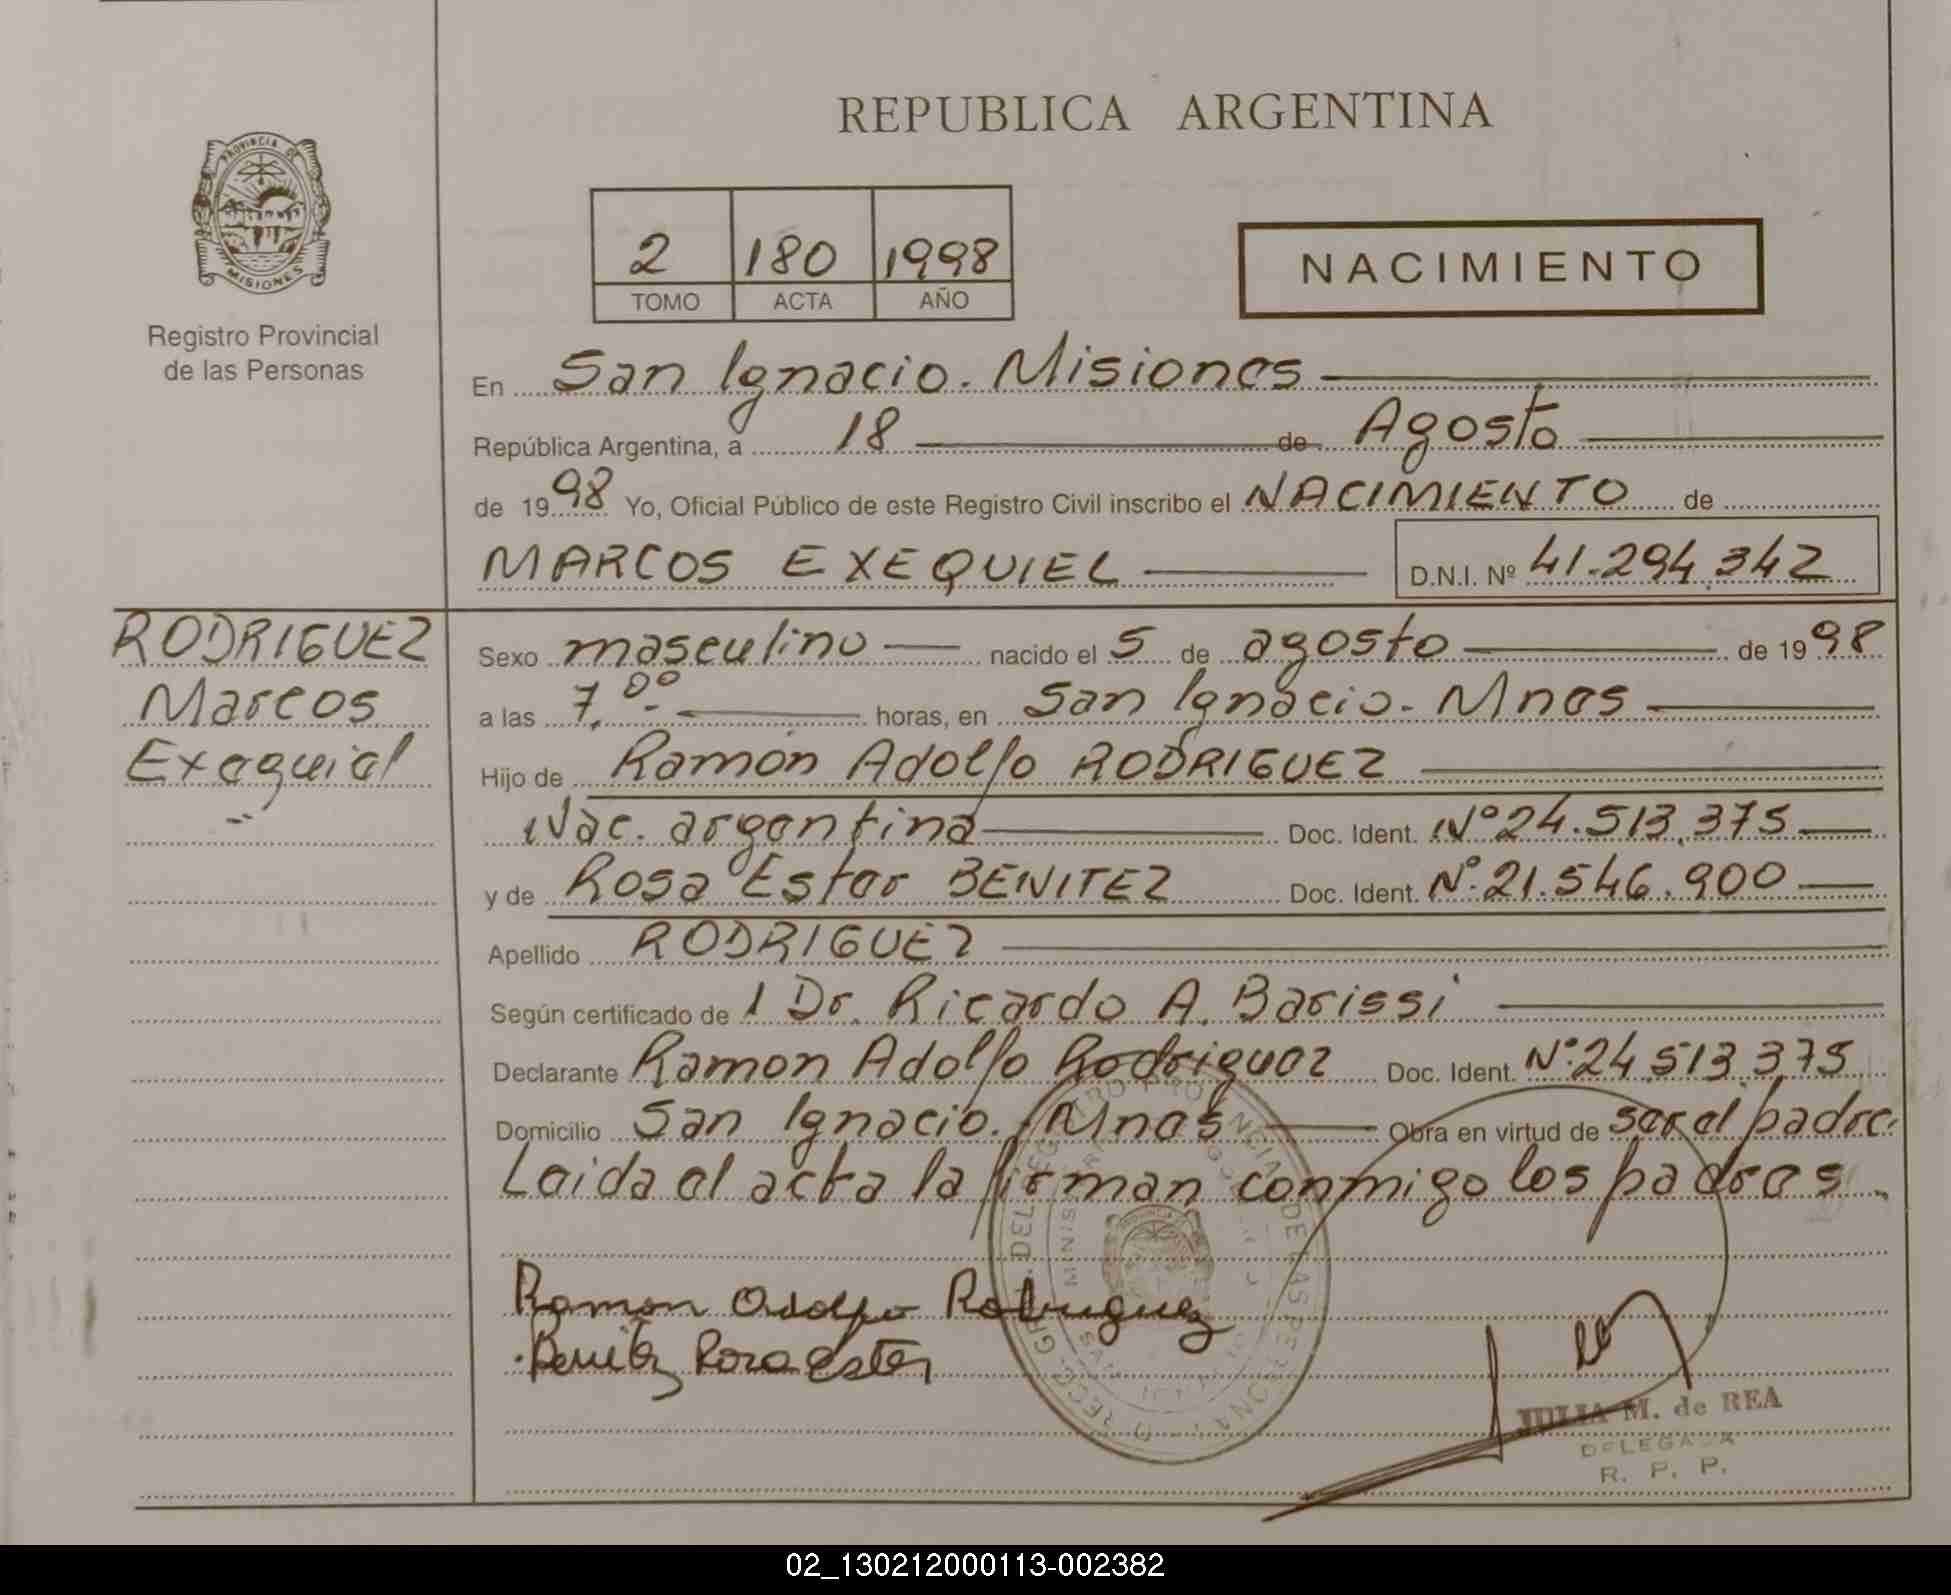 REPUBLICA ARGENTINA
PROVINCIA DE
MISIONES
Registro Provincial
de las Personas
2 180 1998
TOMO ACTA AÑO
NACIMIENTO
En San Ignacio. Misiones
República Argentina, a 18 de Agosto
de 1998 Yo, Oficial Público de este Registro Civil inscribo el NACIMIENTO de
MARCOS EXEQUIEL D.N.I. Nº 41.294.342
RODRIGUEZ
Marcos
Exequiel
Sexo masculino nacido el 5 de agosto de 1998
a las 7,00- horas, en San Ignacio- Mnes
Hijo de Ramón Adolfo RODRIGUEZ
Nac. argentina Doc. Ident. Nº 24.513.375
y de Rosa Ester BENITEZ Doc. Ident. Nº 21.546.900
Apellido RODRIGUEZ
Según certificado de 1 Dr. Ricardo A. Barissi
Declarante Ramon Adolfo Rodriguez Doc. Ident. Nº 24.513.375
Domicilio San Ignacio. Mnes Obra en virtud de ser el padre.
Leida el acta la firman conmigo los padres.
Ramon Adolfo Rodriguez
Benitez Rosa Ester
JULIA M. de REA
DELEGADA
R. P. P.
02_130212000113-002382